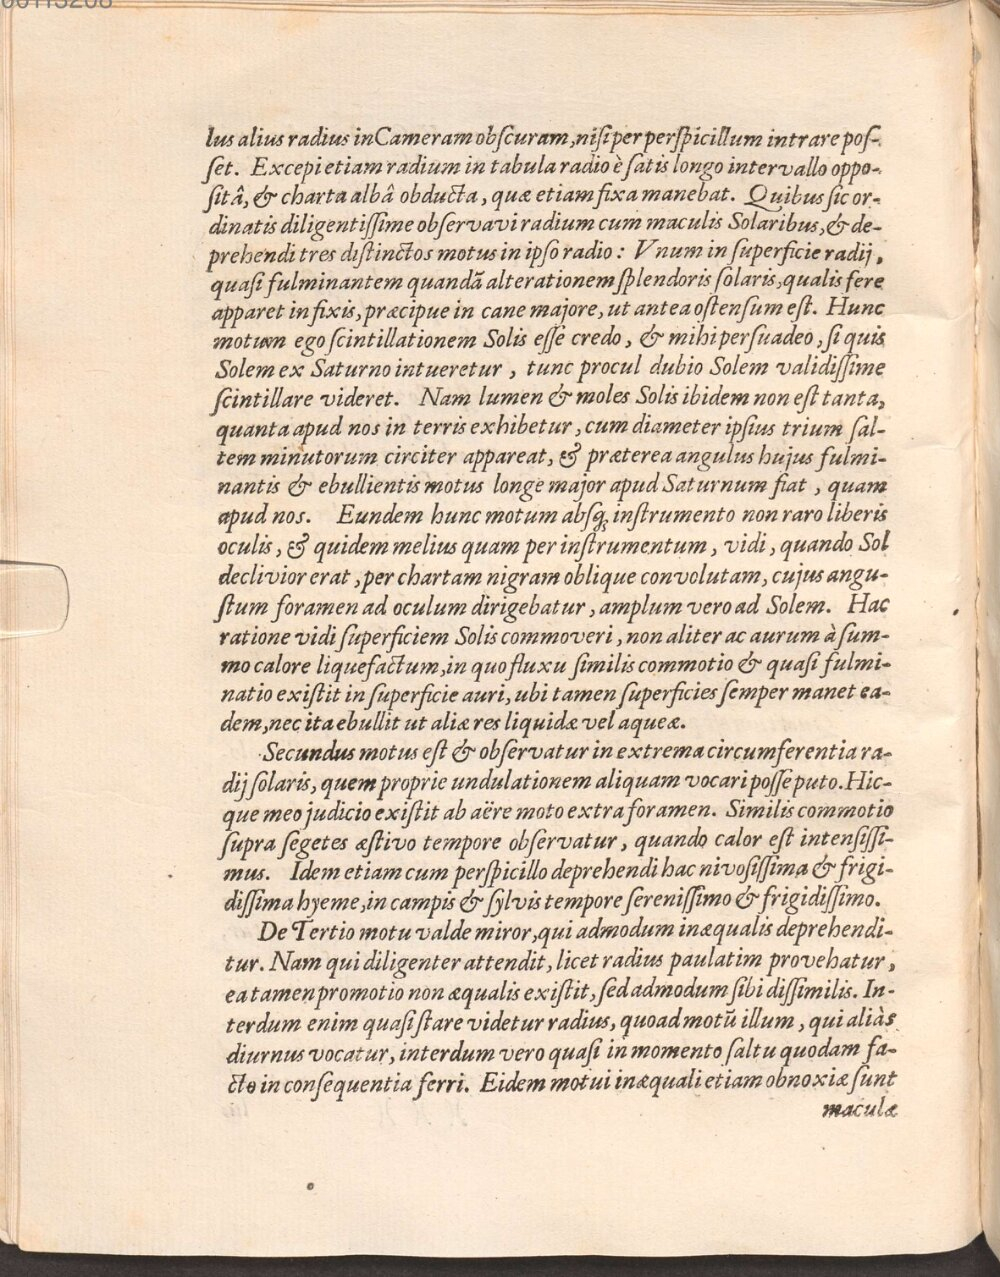 lus alius radius in Cameram obscuram, nisi per perspicillum intrare pos-
set. Excepi etiam radium in tabula radio è satis longo intervallo oppo-
sitâ, & charta albâ obducta, quæ etiam fixa manebat. Quibus sic or-
dinatis diligentissime observavi radium cum maculis Solaribus, & de-
prehendi tres distinctos motus in ipso radio: Vnum in superficie radij,
quasi fulminantem quandã alterationem splendoris solaris, qualis fere
apparet in fixis, præcipue in cane majore, ut antea ostensum est. Hunc
motum ego scintillationem Solis esse credo, & mihi persuadeo, si quis
Solem ex Saturno intueretur, tunc procul dubio Solem validissime
scintillare videret. Nam lumen & moles Solis ibidem non est tanta,
quanta apud nos in terris exhibetur, cum diameter ipsius trium sal-
tem minutorum circiter appareat, & præterea angulus hujus fulmi-
nantis & ebullientis motus longe major apud Saturnum fiat, quam
apud nos. Eundem hunc motum absq; instrumento non raro liberis
oculis, & quidem melius quam per instrumentum, vidi, quando Sol
declivior erat, per chartam nigram oblique convolutam, cujus angu-
stum foramen ad oculum dirigebatur, amplum vero ad Solem. Hac
ratione vidi superficiem Solis commoveri, non aliter ac aurum à sum-
mo calore liquefactum, in quo fluxu similis commotio & quasi fulmi-
natio existit in superficie auri, ubi tamen superficies semper manet ea-
dem, nec ita ebullit ut aliæ res liquidæ vel aqueæ.
Secundus motus est & observatur in extrema circumferentia ra-
dij solaris, quem proprie undulationem aliquam vocari posse puto. Hic-
que meo judicio existit ab aëre moto extra foramen. Similis commotio
supra segetes æstivo tempore observatur, quando calor est intensissi-
mus. Idem etiam cum perspicillo deprehendi hac nivosissima & frigi-
dissima hyeme, in campis & sylvis tempore serenissimo & frigidissimo.
De Tertio motu valde miror, qui admodum inæqualis deprehendi-
tur. Nam qui diligenter attendit, licet radius paulatim provehatur,
ea tamen promotio non æqualis existit, sed admodum sibi dissimilis. In-
terdum enim quasi stare videtur radius, quoad motũ illum, qui aliàs
diurnus vocatur, interdum vero quasi in momento saltu quodam fa-
cto in consequentia ferri. Eidem motui inæquali etiam obnoxiæ sunt
maculæ